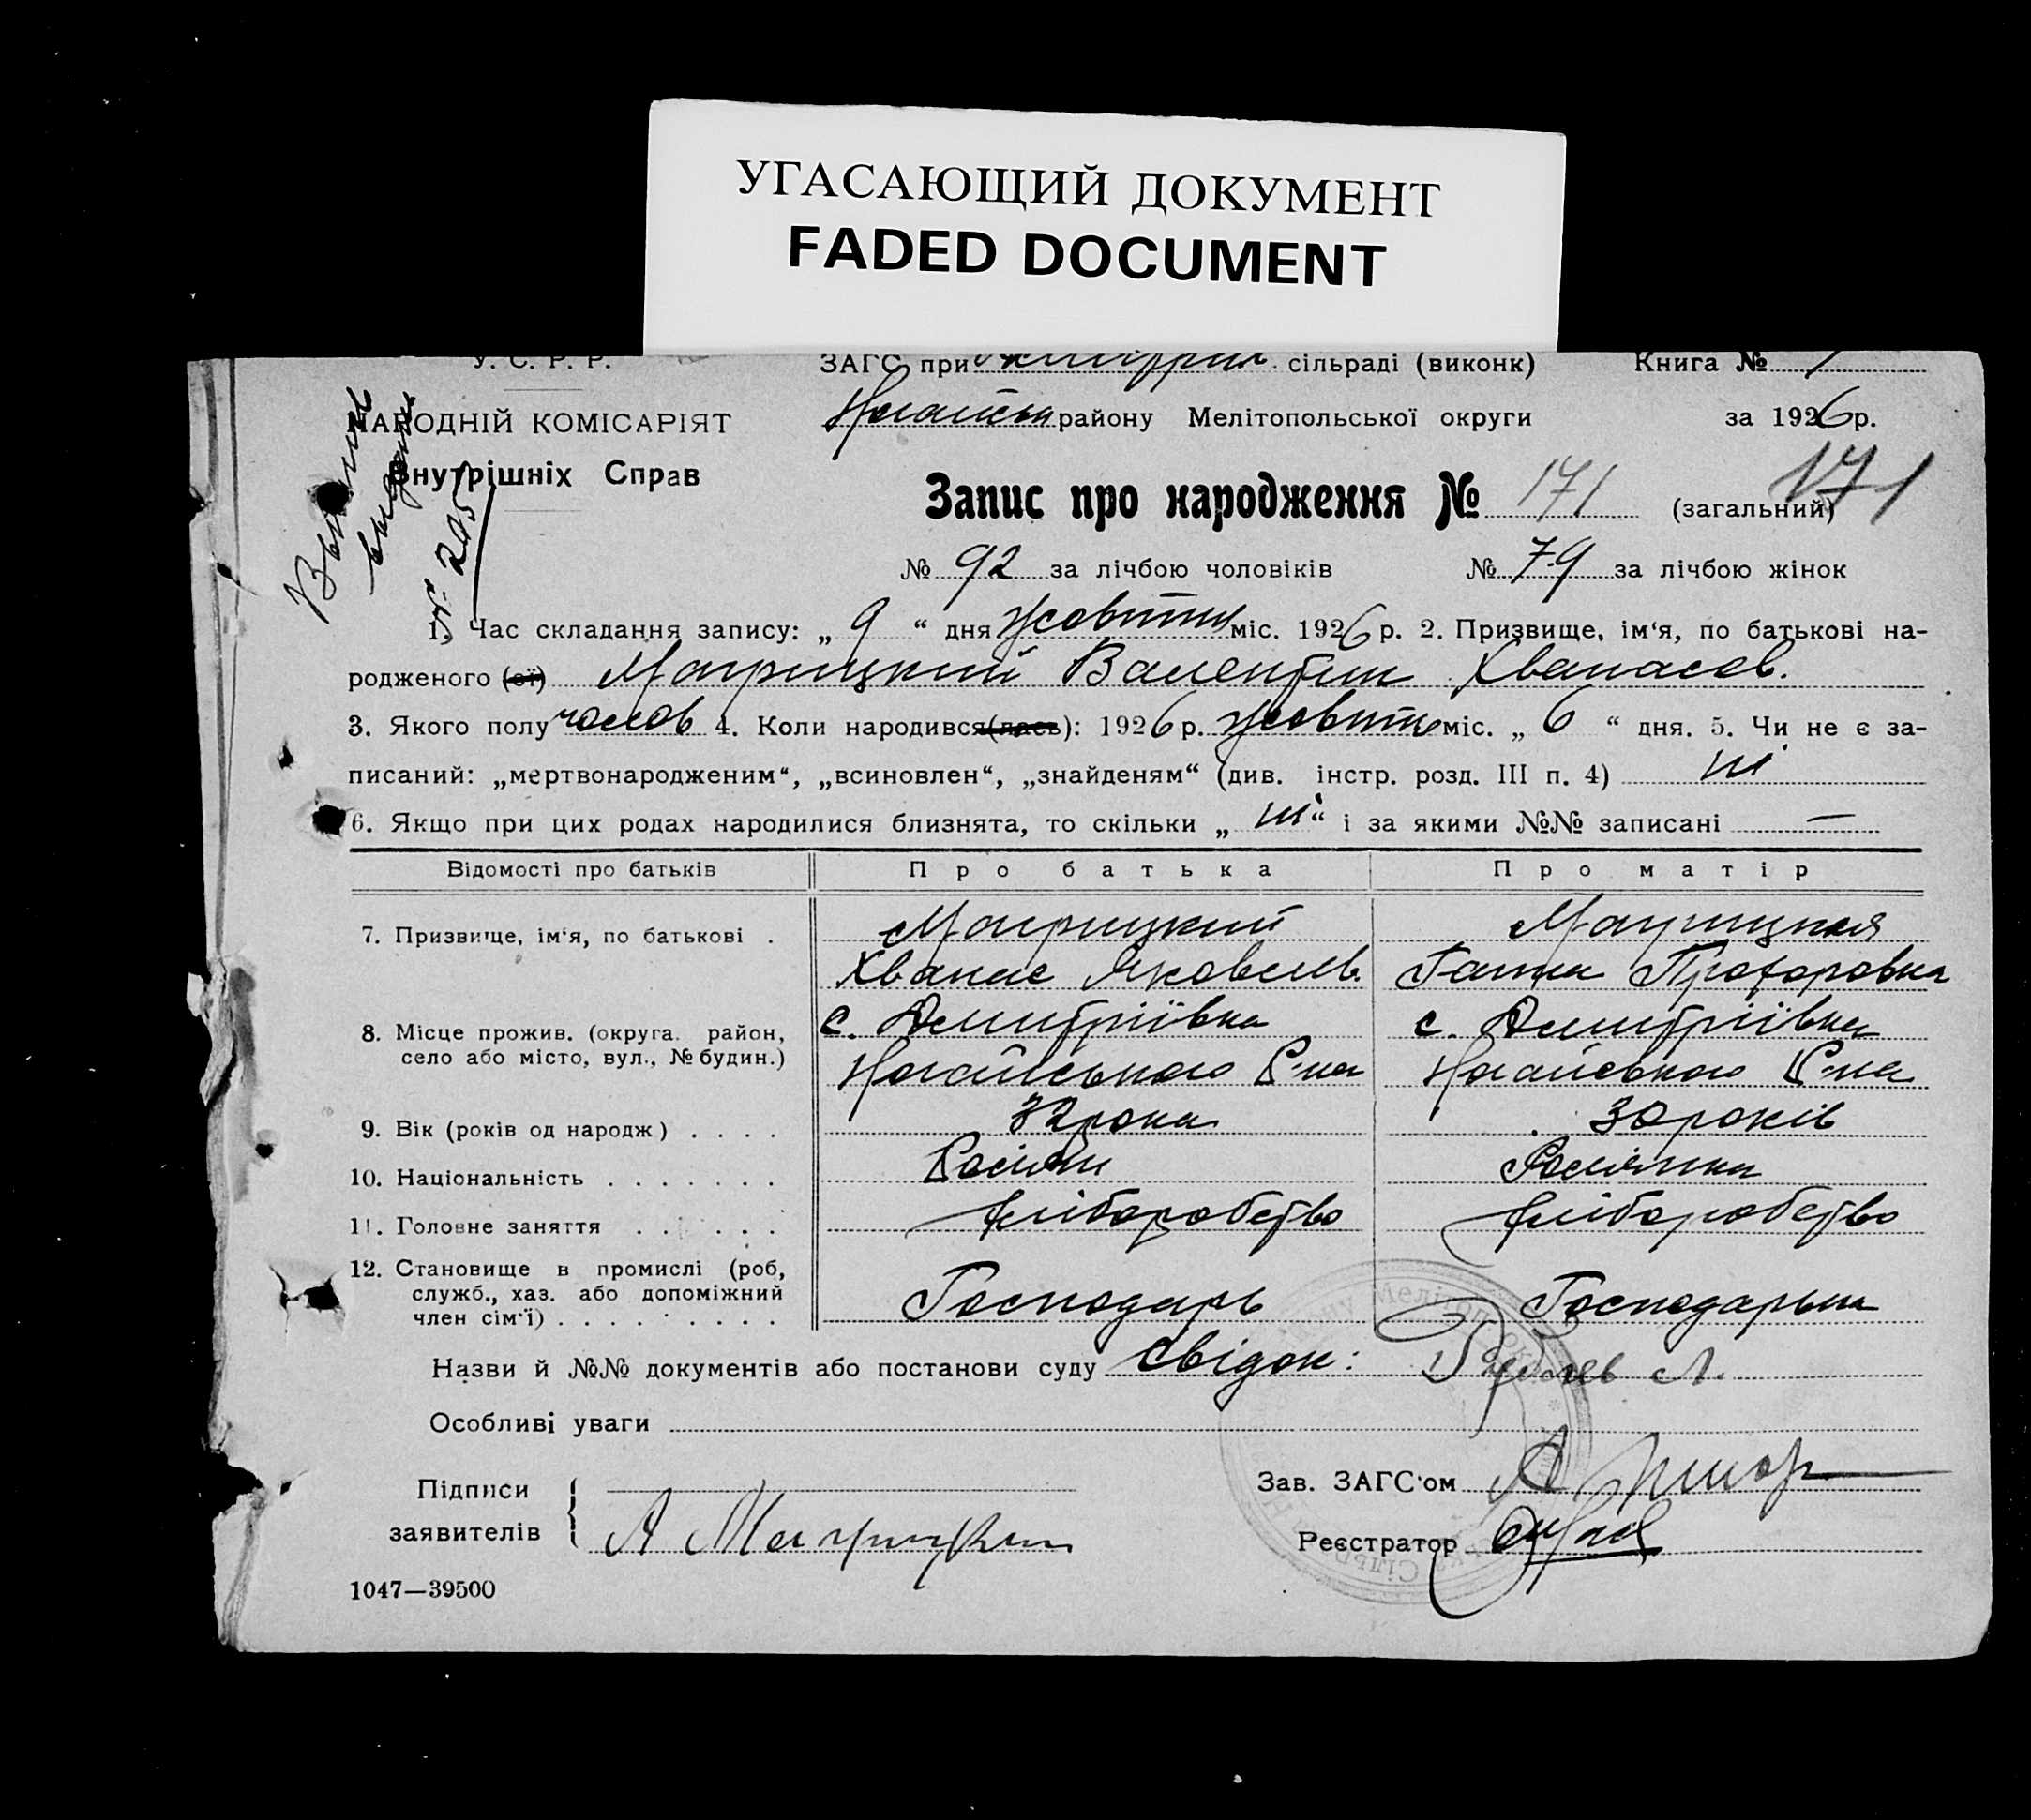 УГАСАЮЩИЙ ДОКУМЕНТ
FADED DOCUMENT
У. С. Р. Р.
ЗАГС при сільраді (виконк) Книга № 1
НАРОДНІЙ КОМІСАРІЯТ
Внутрішніх Справ
району Мелітопольської округи за 1926 р.
№ 205
Запис про народження № 171 (загальний) 171
№ 92 за лічбою чоловіків № 79 за лічбою жінок
1. Час складання запису: „ 9 “ дня жовтня міс. 1926 р. 2. Призвище, ім‘я, по батькові на-
родженого (ої) Магрицкий Валентин Хванасов.
3. Якого полу чолов 4. Коли народився (лась): 1926 р. жовтня міс. „ 6 “ дня. 5. Чи не є за-
писаний: „мертвонародженим“, „всиновлен“, „знайденям“ (див. інстр. розд. III п. 4) ні
6. Якщо при цих родах народилися близнята, то скільки „ ні “ і за якими №№ записані —
Відомості про батьків Про батька Про матір
7. Призвище, ім‘я, по батькові . Магрицкий Магрицкая
Хванас Яковлев. Ганна Прохоровна
8. Місце прожив. (округа. район, село або місто, вул., № будин.) с. Дмитріївка с. Дмитріївка
Ногайського Р-на Ногайського Р-на
9. Вік (років од народж) . . . . 32 роки 30 років
10. Національність . . . . . . . Росіян Росіянка
11. Головне заняття . . . . . . хліборобство хліборобство
12. Становище в промислі (роб, служб., хаз. або допоміжний член сім‘ї) . . . . . . . . . Господарь Господарька
Назви й №№ документів або постанови суду Свідок: Л.
Особливі уваги
Підписи
заявителів А Магрицкий
Зав. ЗАГС‘ом
Реєстратор
1047—39500